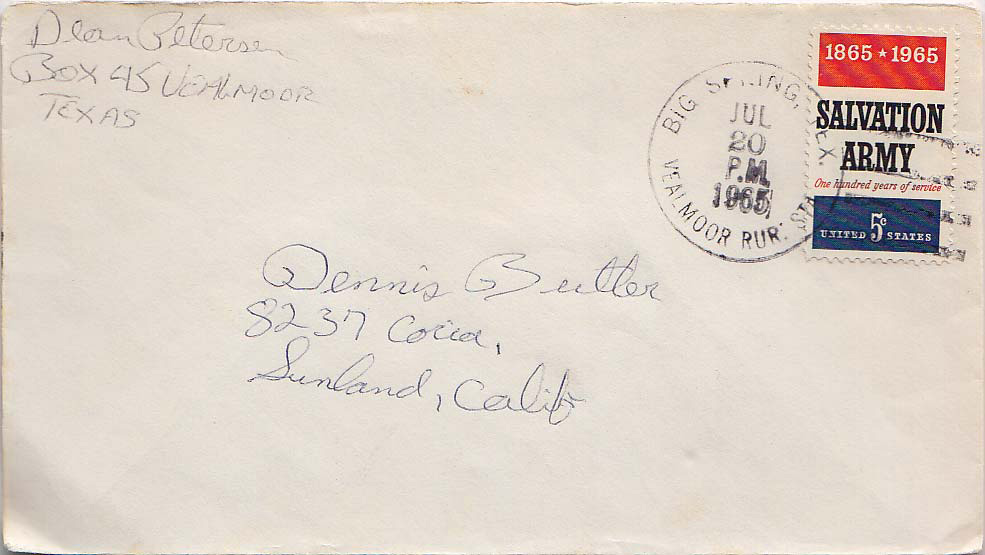 Dean Petersen
Box 45 VEALMOOR
TEXAS
BIG SPRING, TEX.
JUL
20
P.M.
1965
VEALMOOR RUR. STA.
1865 ★ 1965
SALVATION
ARMY
One hundred years of service
UNITED 5c STATES
Dennis Butler
8237
Sunland, Calif